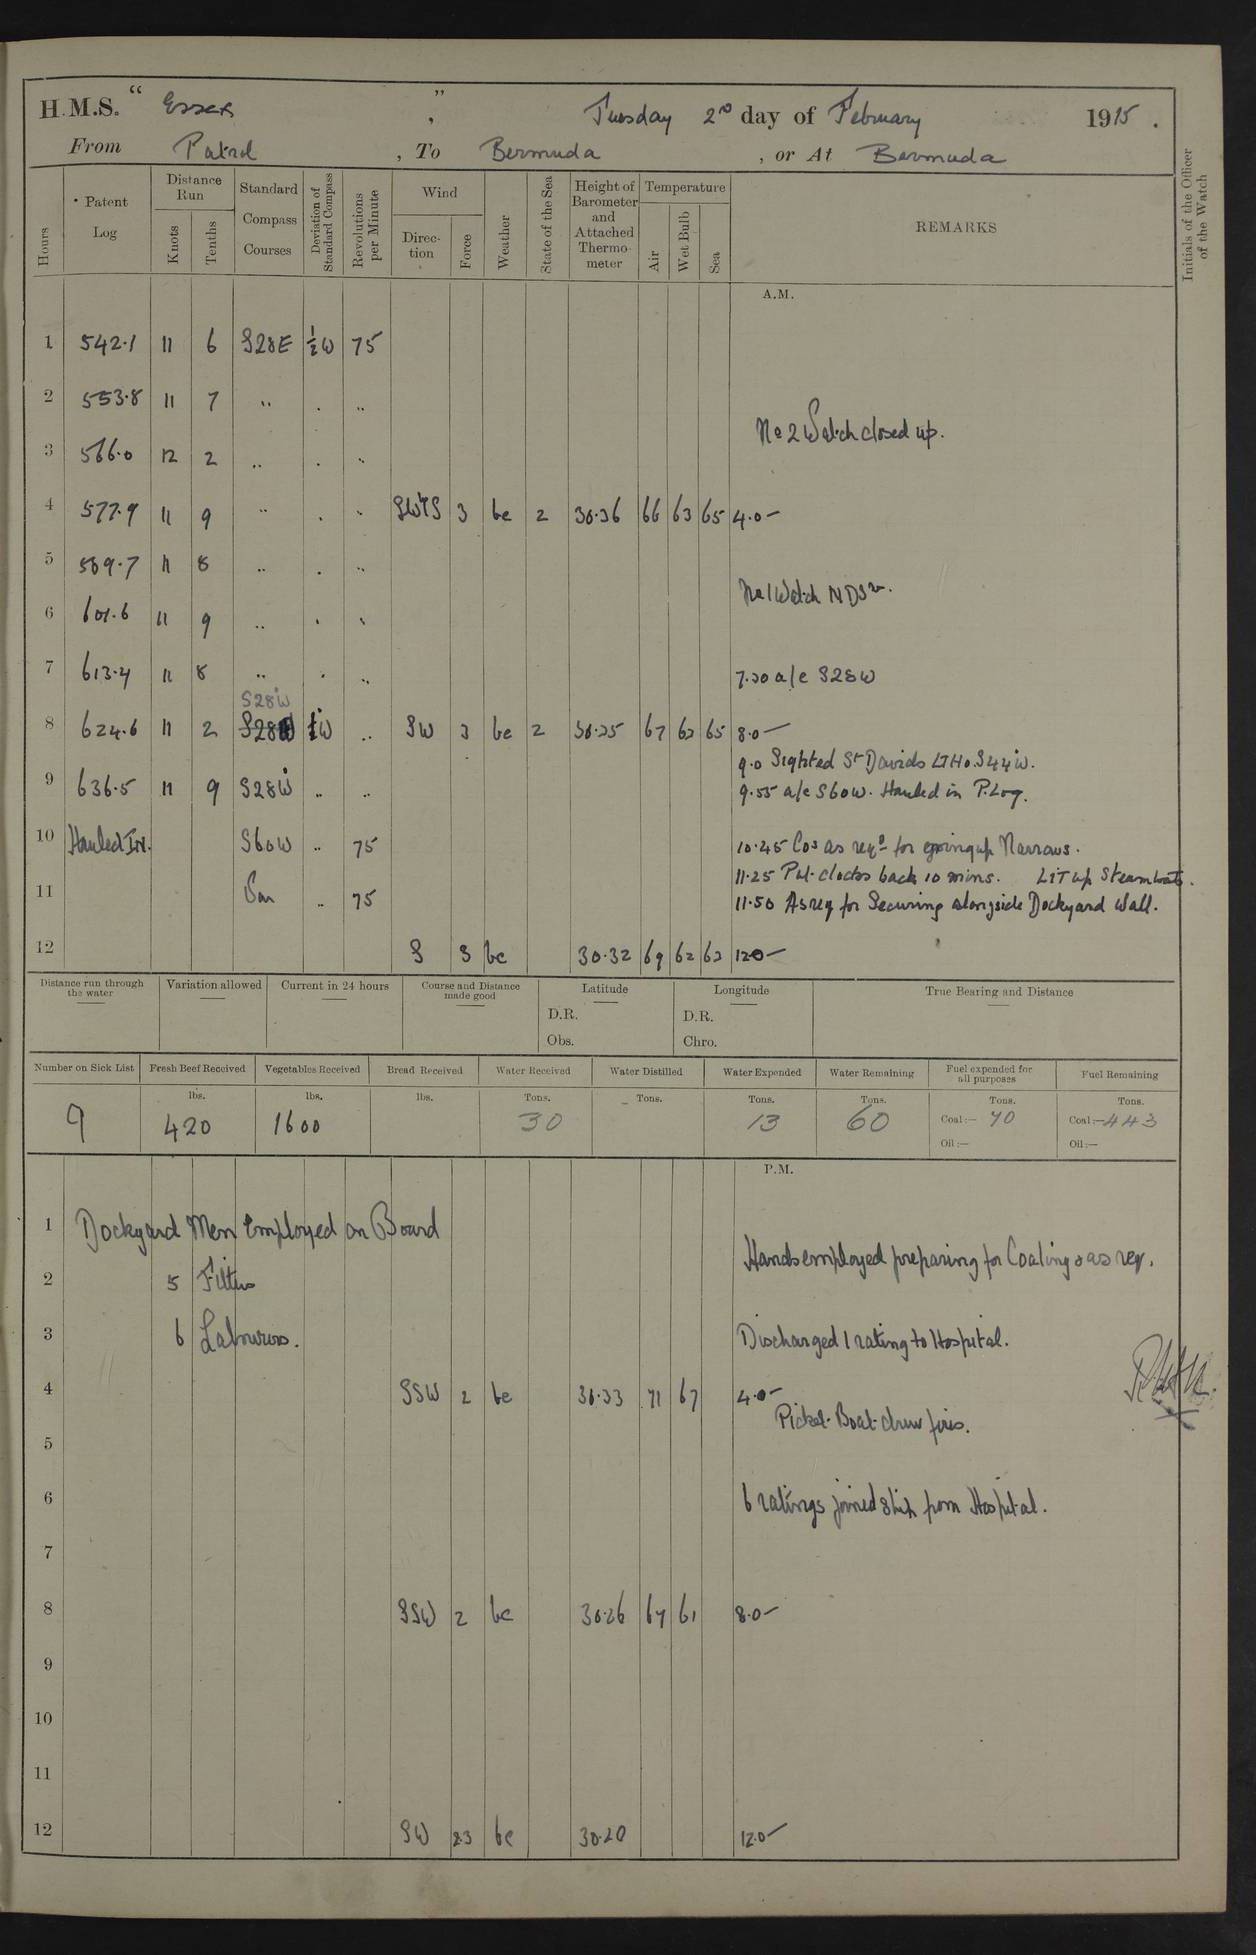 H.M.S. “ Essex ” , Tuesday 2nd day of February 1915 .
From Patrol , To Bermuda , or At Bermuda
Hours Patent Log Distance Run Knots Tenths Standard Compass Courses Deviation of Standard Compass Revolutions per Minute Wind Direction Force Weather State of the Sea Height of Barometer and Attached Thermometer Temperature Air Wet Bulb Sea REMARKS Initials of the Officer of the Watch
A.M.
1 542.1 11 6 S28E ½W 75
2 553.8 11 7 " . "
No 2 Watch closed up.
3 566.0 12 2 " . "
4 577.9 11 9 " . " SW'S 3 bc 2 30.36 66 63 65 4.0—
5 589.7 11 8 " . "
No 1 Watch
6 601.6 11 9 " . "
7 613.4 11 8 " . " 7.20 a/c S28W
S28W
8 624.6 11 2 S28W ½W " SW 3 bc 2 30.35 67 63 65 8.0—
9.0 Sighted St Davids LTHo. S44W.
9 636.5 11 9 S28W " " 9.55 a/c S60W. Hauled in P.Log.
10 Hauled In. S60W " 75 10.45 Cos as reqd for going up Narrows.
11.25 Put clocks back 10 mins. Lit up Steamboats.
11 Var " 75 11.50 As req for Securing alongside Dockyard Wall.
12 S 3 bc 30.32 69 62 63 12.0—
Distance run through the water Variation allowed Current in 24 hours Course and Distance made good Latitude Longitude True Bearing and Distance
D.R. D.R.
Obs. Chro.
Number on Sick List Fresh Beef Received Vegetables Received Bread Received Water Received Water Distilled Water Expended Water Remaining Fuel expended for all purposes Fuel Remaining
lbs. lbs. lbs. Tons. Tons. Tons. Tons. Tons. Tons.
9 420 1600 30 13 60 Coal:— 70 Coal:— 443
Oil:— Oil:—
P.M.
1 Dockyard Men employed on Board
Hands employed preparing for Coaling & as req.
2 5 Fitters
3 6 Labourers. Discharged 1 rating to Hospital.
4 SSW 2 bc 30.33 71 67 4.0—
Picket Boat drew fires.
5
6 6 ratings joined ship from Hospital.
7
8 SSW 2 bc 30.26 67 61 8.0—
9
10
11
12 SW 2.3 bc 30.20 12.0—